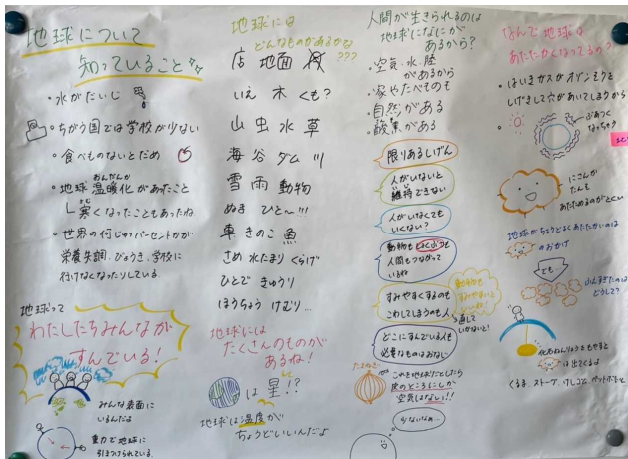 地球について
知っていること
・水がだいじ
・ちがう国では学校が少ない
・食べものないとだめ
おんだんか
・地球温暖化があったこと
└寒くなったこともあったね
・世界の何じゅっパーセントかが
栄養失調、びょうき、学校に
行けなくなったりしている。
地球って
わたしたちみんなが
すんでいる!
みんな表面に
いるんだよ
重力で地球に
引きつけられている。
地球には
どんなものがあるかな
???
店 地面
いえ 木 くも?
山 虫 水 草
海 谷 ダム 川
雪 雨 動物
ぬま ひと〜!!!
車 きのこ 魚
さめ 水たまり くらげ
ひとで きゅうり
ほうちょう けむり...
地球には
たくさんのものが
あるね!
は 星!?
地球は温度が
ちょうどいいんだよ
人間が生きられるのは
地球になにが
あるから?
・空気・水・陸
があるから
・家やたべもの
・自然がある
・酸素がある
限りあるしげん
人がいないと
維持できない
人がいなくても
いくない?
動物も
人間もつながって
いるね
すみやすくするのも
こわしてしまうのも人
動物も
すみやすいと
いいね!
直して
いかないと!
どこにすんでいる人も
必要なものはおなじ
たまねぎ
これを地球だとしたら
皮のところにしか
空気はない!!
少ないなぁ...
なんで地球は
あたたかくなってるの?
・はいきガスがオゾンそうを
しげきして穴があいてしまうから
ぶあつく
なっちゃう
にさんか
たんそ
あたためるのがとくい
地球がちょうどよくあたたかいのは
のおかげ
でも
ふえすぎたのは
どうして?
化石ねんりょうをもやすと
は出てくるよ
くるま、ストーブ、けしごむ、ペットボトル